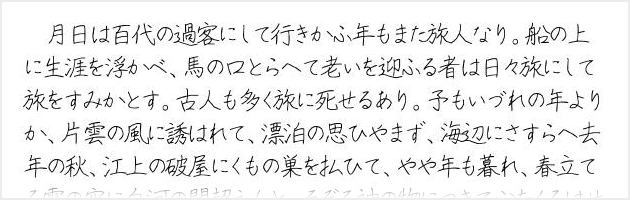 月日は百代の過客にして行きかふ年もまた旅人なり。船の上
に生涯を浮かべ、馬の口とらへて老いを迎ふる者は日々旅にして
旅をすみかとす。古人も多く旅に死せるあり。予もいづれの年より
か、片雲の風に誘はれて、漂泊の思ひやまず、海辺にさすらへ去
年の秋、江上の破屋にくもの巣を払ひて、やや年も暮れ、春立て